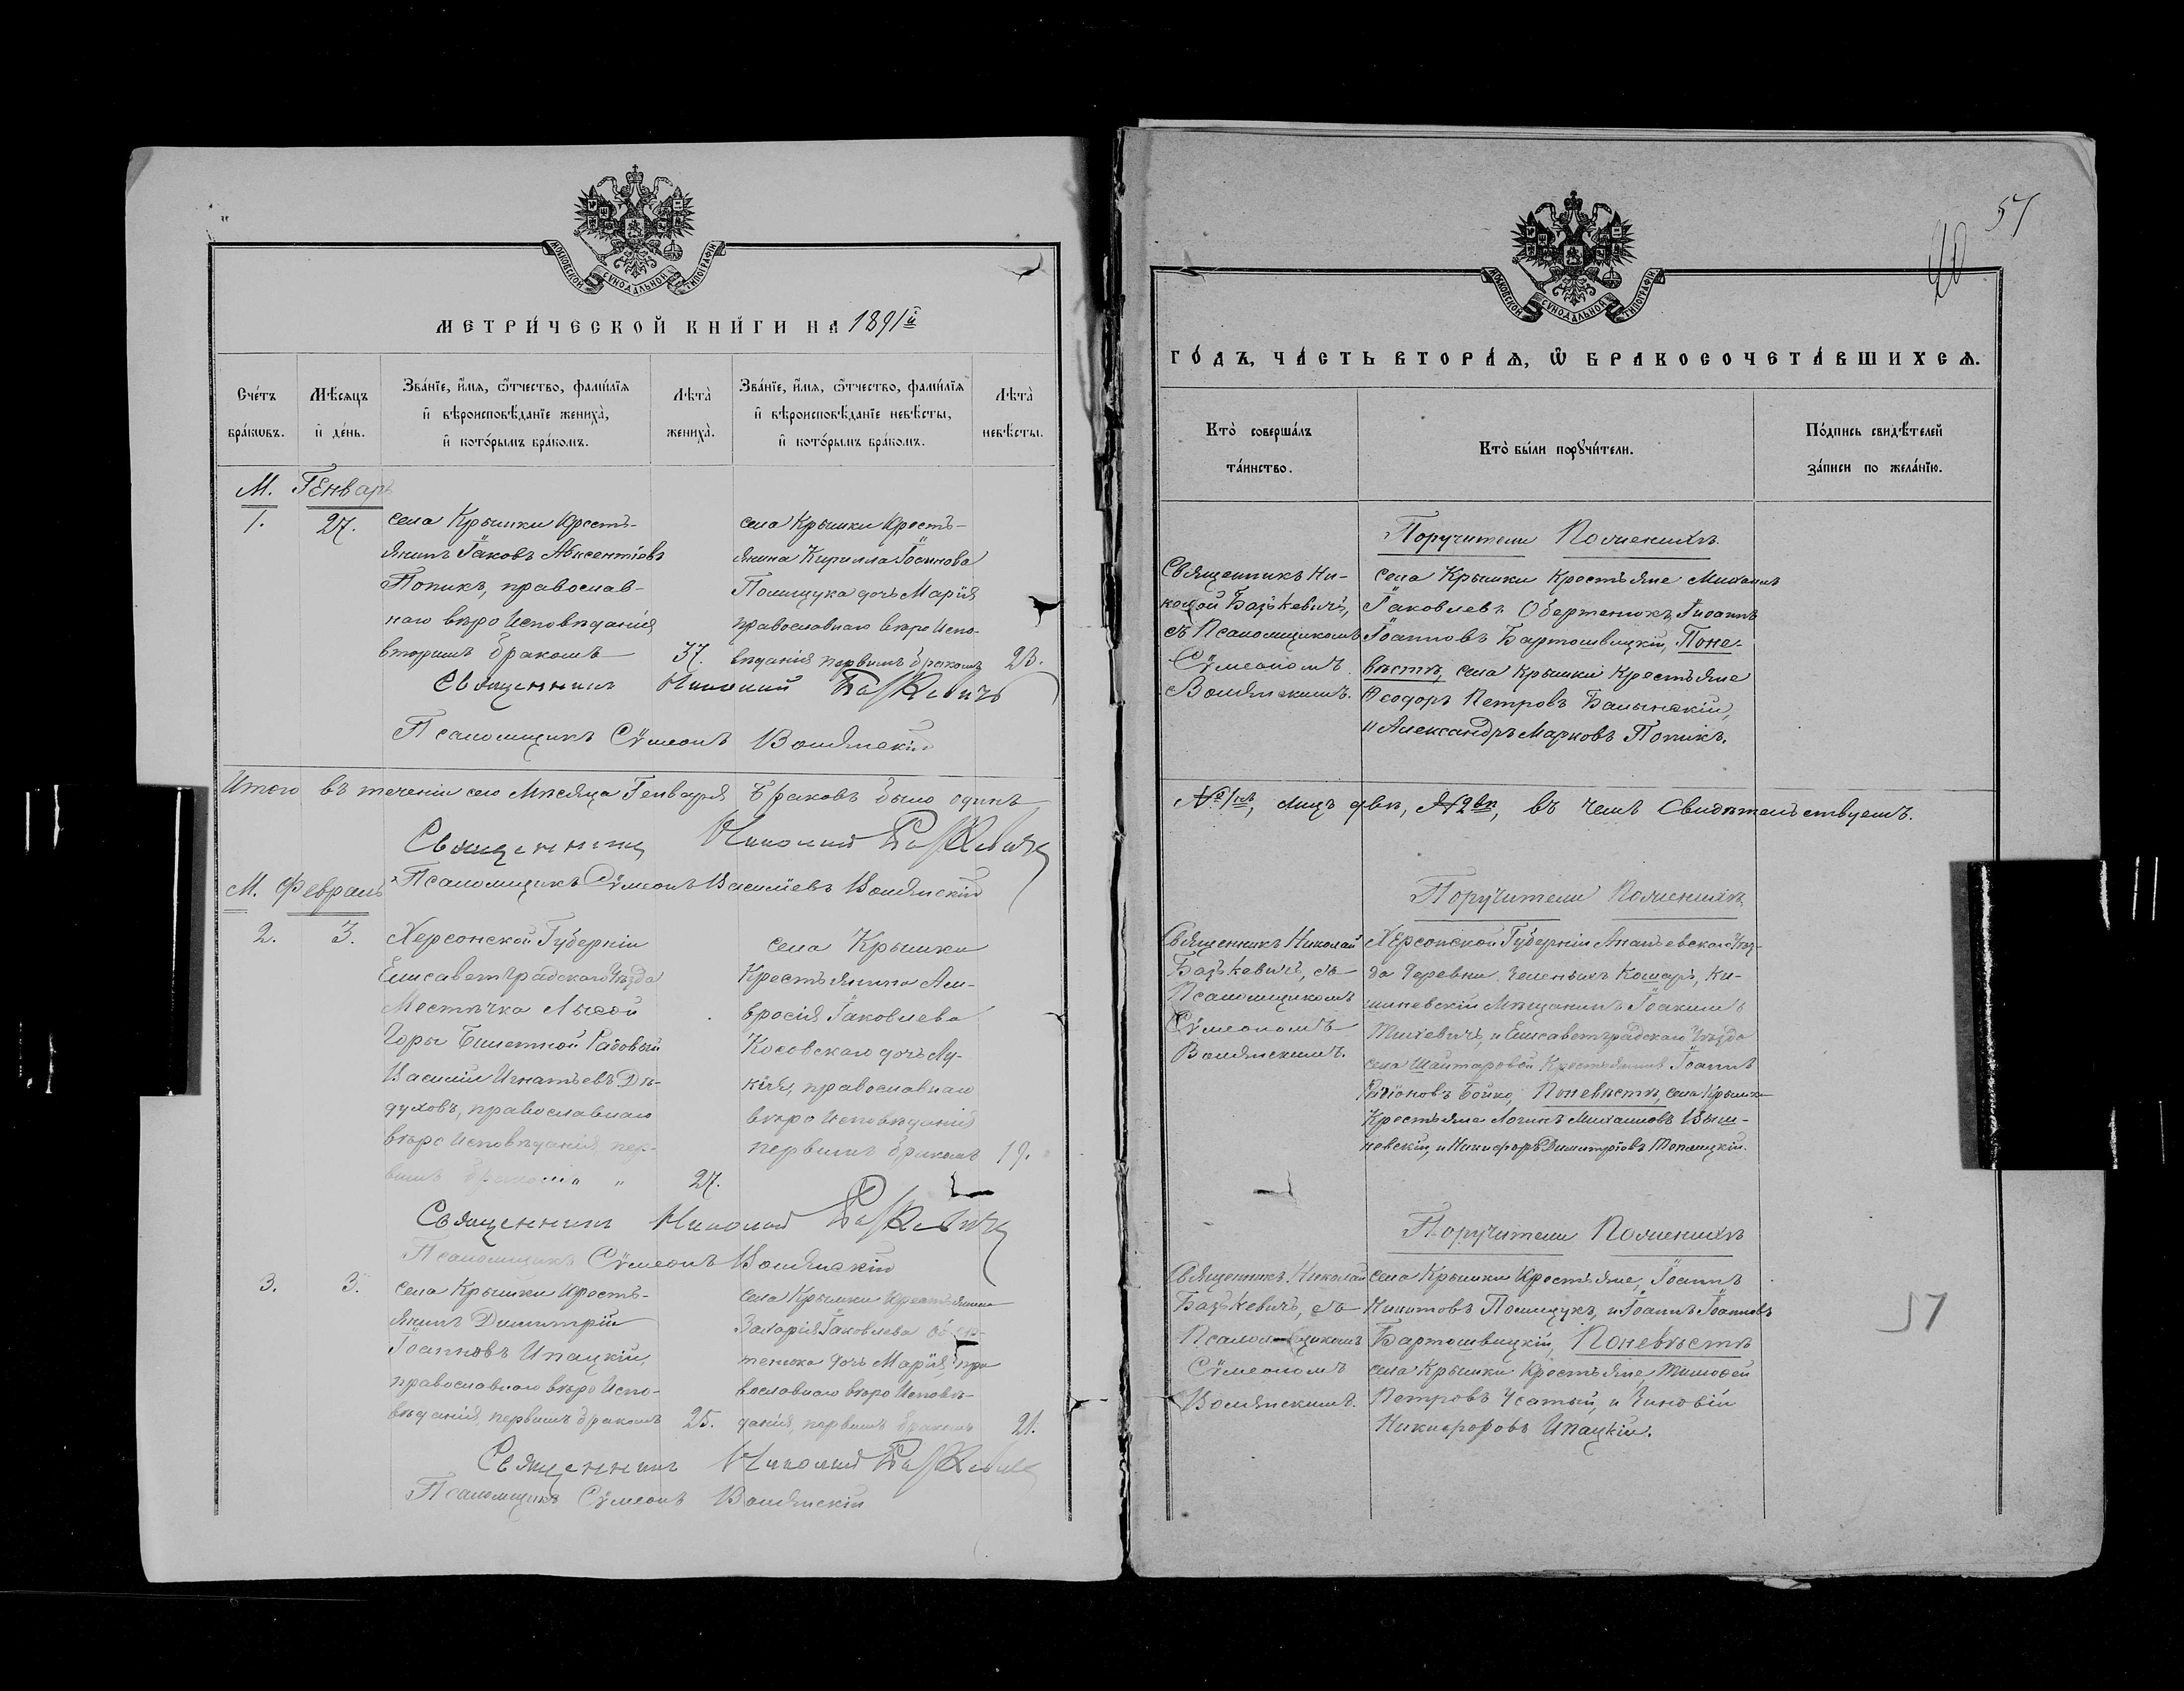 МОСКОВСКОЙ СѴНОДАЛЬНОЙ ТИПОГРАФІИ
МЕТРИ́ЧЕСКОЙ КНИ́ГИ НА 1891й
Сче́тъ бра́кѡвъ.
Мѣ́сяцъ и҆ де́нь.
Зва́нїе, и҆́мѧ, ѻ҆́тчество, фами́лїѧ
и҆ вѣроисповѣ́данїе жениха̀,
и҆ кото́рымъ бра́комъ.
Лѣта̀ жениха̀.
Зва́нїе, и҆́мѧ, ѻ҆́тчество, фами́лїѧ
и҆ вѣроисповѣ́данїе невѣ́сты,
и҆ кото́рымъ бра́комъ.
Лѣта̀ невѣ́сты.
М. Генварь
1. 27.
села Крымки Кресть-
янинъ Іаковъ Авксентіевъ
Попикъ, православ-
наго вѣроисповѣданія
вторымъ бракомъ 37.
села Крымки Кресть-
янина Кирилла Іоаннова
Полищука дочь Марія
православнаго вѣроиспо-
вѣданія первымъ бракомъ 23.
Священникъ Николай Базькевичъ
Псаломщикъ Сѵмеонъ Волянскій
Итого въ теченіи сего Мѣсяца Генваря Браковъ было одинъ
Священникъ Николай Базькевичъ
Псаломщикъ Сѵмеонъ Васильевъ Волянскій
М. Февраль
2. 3.
Херсонской Губерніи
Елисаветградскаго Уѣзда
Мѣстечка Лысой
Горы Билетной Рядовый
Василій Игнатьевъ Дѣ-
духовъ, православнаго
вѣроисповѣданія, пер-
вымъ бракомъ 27.
села Крымки
Крестьянина Ам-
вросія Іаковлева
Косовскаго дочь Лу-
кія, православнаго
вѣроисповѣданія
первымъ бракомъ 19.
Священникъ Николай Базькевичъ
Псаломщикъ Сѵмеонъ Волянскій
3. 3.
села Крымки Кресть-
янинъ Димитрій
Іоанновъ Ипацкій,
православнаго вѣроиспо-
вѣданія, первымъ бракомъ 25.
села Крымки Крестьянина
Захарія Іаковлева
тенюка дочь Марія, пра
вославнаго вѣроисповѣ-
данія, первымъ бракомъ 21.
Священникъ Николай Базькевичъ
Псаломщикъ Сѵмеонъ Волянскій
57
МОСКОВСКОЙ СѴНОДАЛЬНОЙ ТИПОГРАФІИ
ГО́ДЪ, ЧА́СТЬ ВТОРА́Ѧ, Ѡ҆ БРАКОСОЧЕТА́ВШИХСѦ.
Кто̀ соверша́лъ
та́инство.
Кто̀ бы́ли порꙋчи́тели.
По́дпись свидѣ́телей
за́писи по жела́нїю.
Поручители Поженихѣ
Священникъ Ни-
колай Базькевичъ,
съ Псаломщикомъ
Сѵмеономъ
Волянскимъ.
села Крымки Крестьяне Михаилъ
Іаковлевъ Обертенюкъ, Іоаннъ
Іоанновъ Бартошвицкій, Поне-
вѣстѣ, села Крымки Крестьяне
Ѳеодоръ Петровъ Балынскій,
и Александръ Марковъ Попикъ.
№ 1нъ, лицъ двѣ, № 2вѣ, въ чемъ Свидѣтельствуемъ.
Поручители Поженихѣ
Священникъ Николай
Базькевичъ, съ
Псаломщикомъ
Сѵмеономъ
Волянскимъ.
Херсонской Губерніи Ананьевскаго Уѣз-
да Деревни Зеленыхъ Кошаръ, Ки-
шиневскій Мѣщанинъ Іоакимъ
и Елисаветградскаго Уѣзда
села Крестьянинъ Іоаннъ
Бойко, Поневѣстѣ, села Крымки
Крестьяне Логинъ Михаиловъ Выш-
невскій, и Никифоръ Димитріовъ Топлицкій.
Поручители Поженихѣ
Священникъ Николай
Базькевичъ, съ
Псаломщикомъ
Сѵмеономъ
Волянскимъ.
села Крымки Крестьяне, Іоаннъ
Никитовъ Полищукъ, и Іоаннъ Іоанновъ
Бартошвицкій, Поневѣстѣ
села Крымки Крестьяне, Тимоѳей
Петровъ Усатый, и Зиновій
Никифоровъ Ипацкій.
57